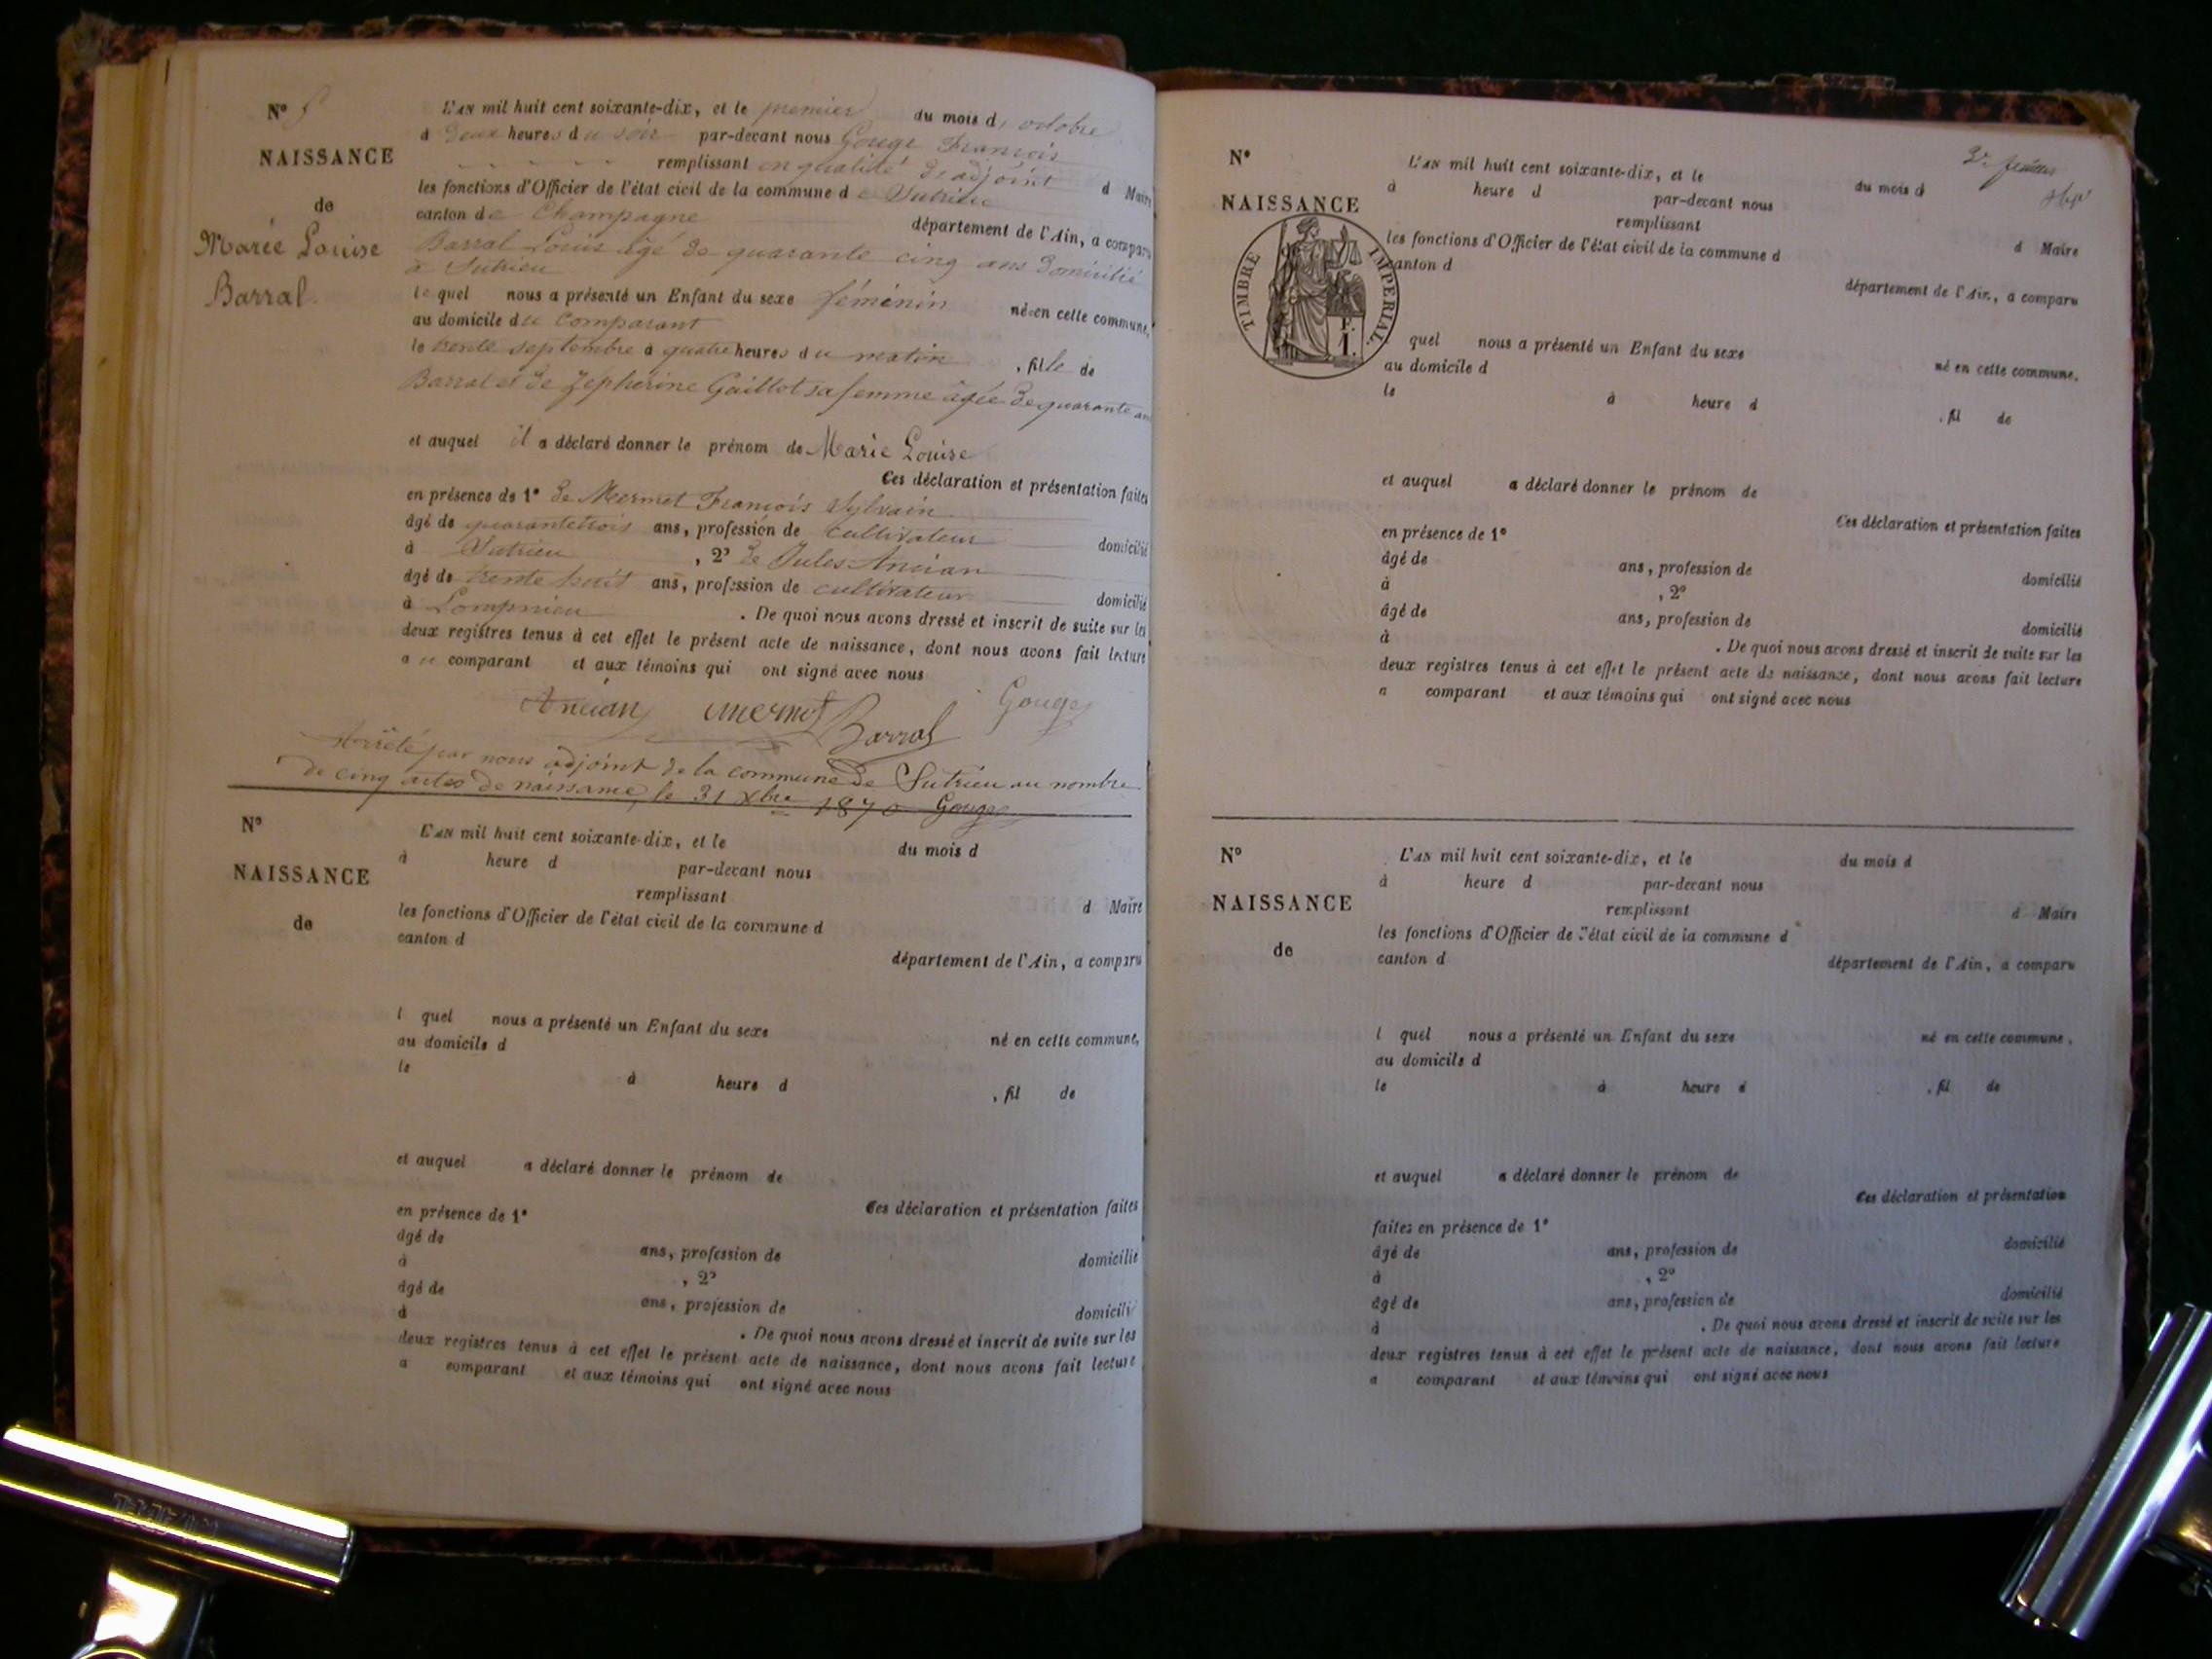 N° 5
NAISSANCE
de
Marie Louise
Barral
L'AN mil huit cent soixante-dix, et le premier du mois d' octobre
à deux heures du soir par-devant nous Gouge François
remplissant en qualité de adjoint d Maire
les fonctions d'Officier de l'état civil de la commune de Sutrieu
canton de Champagne département de l'Ain, a comparu
Barral Louis âgé de quarante cinq ans domicilié
à Sutrieu
lequel nous a présenté un Enfant du sexe féminin née en cette commune,
au domicile du comparant
le trente septembre à quatre heures du matin , fille de
Barral et de Zéphirine Gaillot sa femme âgée de quarante ans
et auquel il a déclaré donner le prénom de Marie Louise
Ces déclaration et présentation faites
en présence de 1° de Mermet François Sylvain
âgé de quarante trois ans, profession de cultivateur domicilié
à Sutrieu , 2° de Jules Ancian
âgé de trente huit ans, profession de cultivateur domicilié
à Lompnieu . De quoi nous avons dressé et inscrit de suite sur les
deux registres tenus à cet effet le présent acte de naissance, dont nous avons fait lecture
au comparant et aux témoins qui ont signé avec nous
Ancian Mermet Barral Gouge
Arrêté par nous adjoint de la commune de Sutrieu au nombre
de cinq actes de naissance, le 31 Xbre 1870 Gouge
N°
NAISSANCE
de
L'AN mil huit cent soixante-dix, et le du mois d
à heure d par-devant nous
remplissant
d Maire
les fonctions d'Officier de l'état civil de la commune d
canton d
département de l'Ain, a comparu
l quel nous a présenté un Enfant du sexe
né en cette commune,
au domicile d
le à heure d , fil de
et auquel a déclaré donner le prénom de
Ces déclaration et présentation faites
en présence de 1°
âgé de ans, profession de domicilié
à , 2°
âgé de ans, profession de domicilié
à . De quoi nous avons dressé et inscrit de suite sur les
deux registres tenus à cet effet le présent acte de naissance, dont nous avons fait lecture
a comparant et aux témoins qui ont signé avec nous
N°
NAISSANCE
TIMBRE IMPERIAL
L'AN mil huit cent soixante-dix, et le du mois d
à heure d par-devant nous
remplissant
d Maire
les fonctions d'Officier de l'état civil de la commune d
canton d
département de l'Ain, a comparu
quel nous a présenté un Enfant du sexe
né en cette commune,
au domicile d
le à heure d , fil de
et auquel a déclaré donner le prénom de
Ces déclaration et présentation faites
en présence de 1°
âgé de ans, profession de domicilié
à , 2°
âgé de ans, profession de domicilié
à . De quoi nous avons dressé et inscrit de suite sur les
deux registres tenus à cet effet le présent acte de naissance, dont nous avons fait lecture
a comparant et aux témoins qui ont signé avec nous
N°
NAISSANCE
de
L'AN mil huit cent soixante-dix, et le du mois d
à heure d par-devant nous
remplissant
d Maire
les fonctions d'Officier de l'état civil de la commune d
canton d
département de l'Ain, a comparu
l quel nous a présenté un Enfant du sexe né en cette commune,
au domicile d
le à heure d , fil de
et auquel a déclaré donner le prénom de
Ces déclaration et présentation
faites en présence de 1°
âgé de ans, profession de domicilié
à , 2°
âgé de ans, profession de domicilié
à . De quoi nous avons dressé et inscrit de suite sur les
deux registres tenus à cet effet le présent acte de naissance, dont nous avons fait lecture
a comparant et aux témoins qui ont signé avec nous